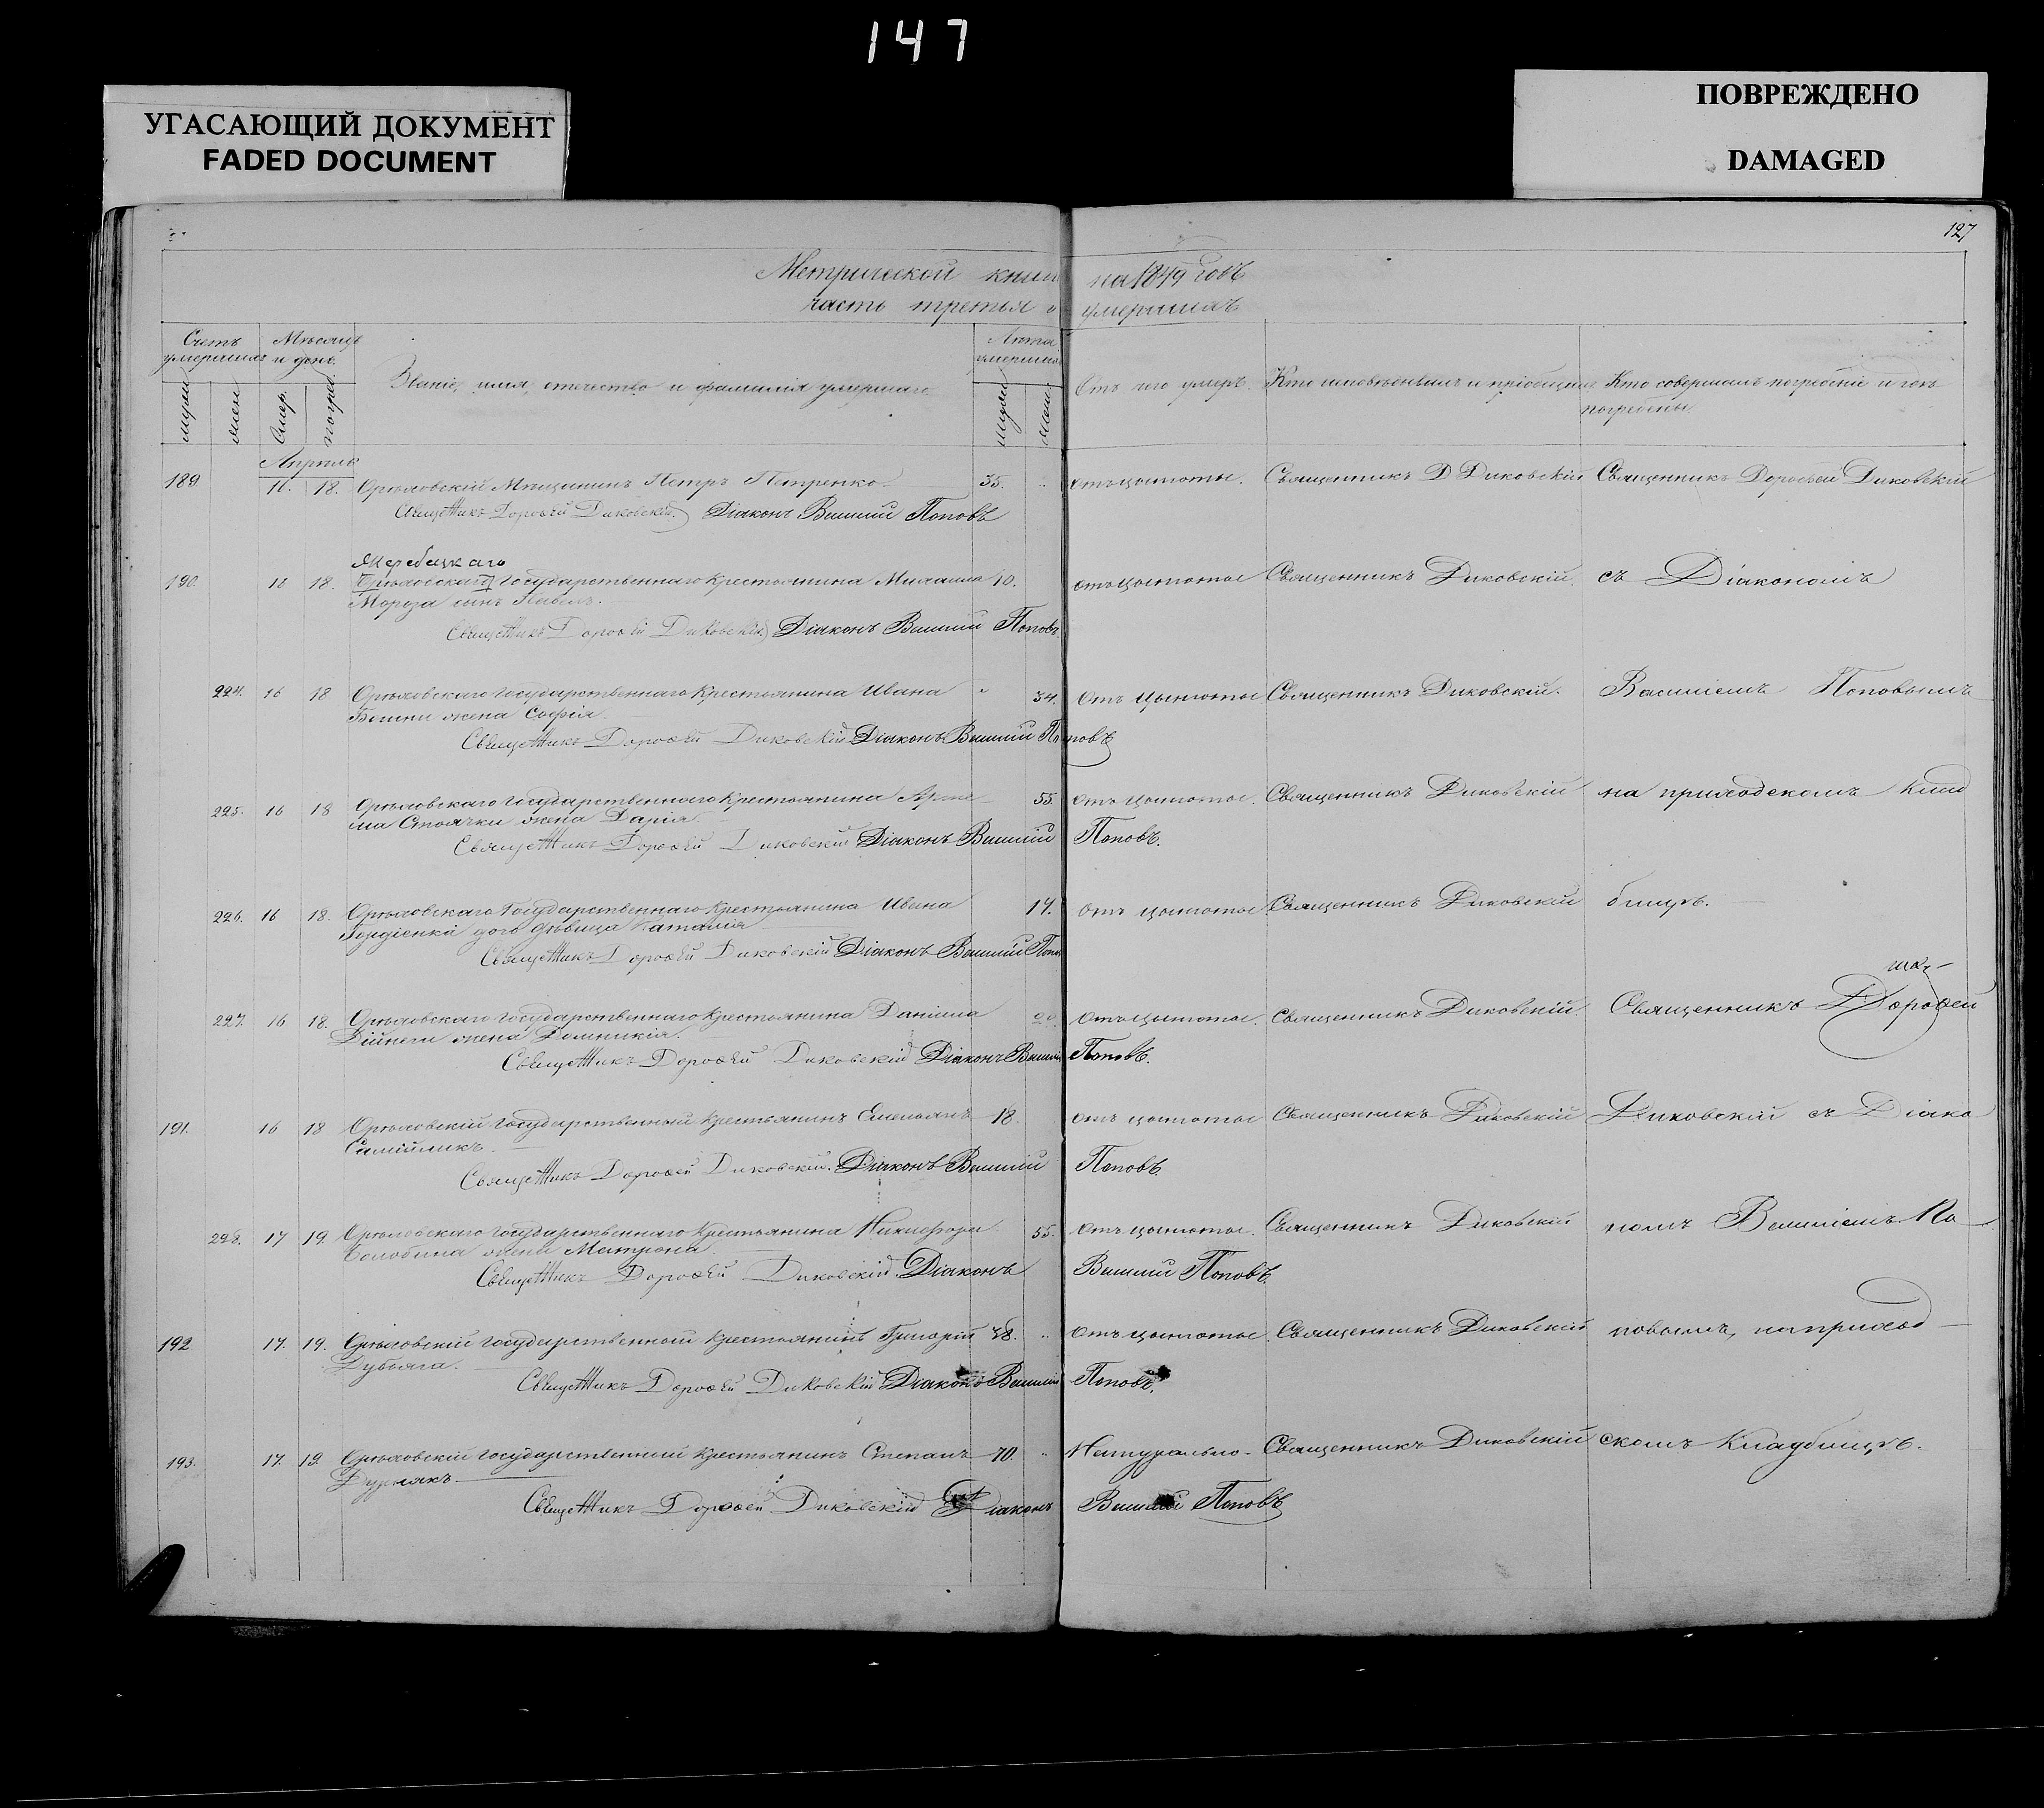 147
УГАСАЮЩИЙ ДОКУМЕНТ
FADED DOCUMENT
ПОВРЕЖДЕНО
DAMAGED
127
Метрической книги на 1849 годъ
часть третья о умершихъ
Счетъ умершихъ
Мѣсяцъ и день.
Званіе, имя, отечество и фамилія умершаго.
Лѣта умершаго
Отъ чего умеръ.
Кто исповѣдывалъ и пріобщилъ
Кто совершалъ погребеніе и гдѣ погребены.
мужи
жен
Смер.
погреб.
мужи
жен
Апрѣль
189. 16. 18. Орѣховскій Мѣщанинъ Петръ Петренко. 35. отъ цынготы. Священникъ Д Диковскій Священникъ Дорофей Диковскій
Священникъ Дорофей Диковскій Діаконъ Василій Поповъ
Жеребецкаго
190. 16 18. Орѣховскаго Государственнаго Крестьянина Михаила 10. отъ цынготы Священникъ Диковскій. съ Діакономъ
Мороза сынъ Павелъ.
Священникъ Дорофей Диковскій Діаконъ Василій Поповъ.
224. 16 18 Орѣховскаго Государственнаго Крестьянина Ивана 34. Отъ цынготы Священникъ Диковскій. Василіемъ Поповымъ
жена Софія.
Священникъ Дорофей Диковскій Діаконъ Василій Поповъ
225. 16 18 Орѣховскаго Государственнаго Крестьянина Арте 55. отъ цынготы. Священникъ Диковскій на приходскомъ Клад
ма Стоячки жена Дарія.
Священникъ Дорофей Диковскій Діаконъ Василій Поповъ.
226. 16 18. Орѣховскаго Государственнаго Крестьянина Ивана 17. отъ цынготы Священникъ Диковскій бищѣ.
дочь дѣвица Наталія
Священникъ Дорофей Диковскій Діаконъ Василій Попо
227. 16 18. Орѣховскаго Государственнаго Крестьянина Даніила 20. отъ цынготы. Священникъ Диковскій. Священникъ Дорофей
жена Домникія.
Священникъ Дорофей Диковскій Діаконъ Василій Поповъ.
191. 16 18 Орѣховскій Государственный Крестьянинъ Емельянъ 18. отъ цынготы Священникъ Диковскій Диковскій съ Діако
Самійликъ.
Священникъ Дорофей Диковскій. Діаконъ Василій Поповъ.
228. 17 19. Орѣховскаго Государственнаго Крестьянина Никифора 55. Отъ цынготы. Священникъ Диковскій номъ Василіемъ По
жена Матрона.
Священникъ Дорофей Диковскій Діаконъ Василій Поповъ.
192 17. 19. Орѣховскій Государственный Крестьянинъ Григорій 38. Отъ цынготы Священникъ Диковскій повымъ, на приход
Дубяга.
Священникъ Дорофей Диковскій Діаконъ Василій Поповъ.
193. 17. 19. Орѣховскій Государственный Крестьянинъ Степанъ 70. Натурально Священникъ Диковскій скомъ Кладбищѣ.
Дурнякъ.
Священникъ Дорофей Диковскій Діаконъ Василій Поповъ